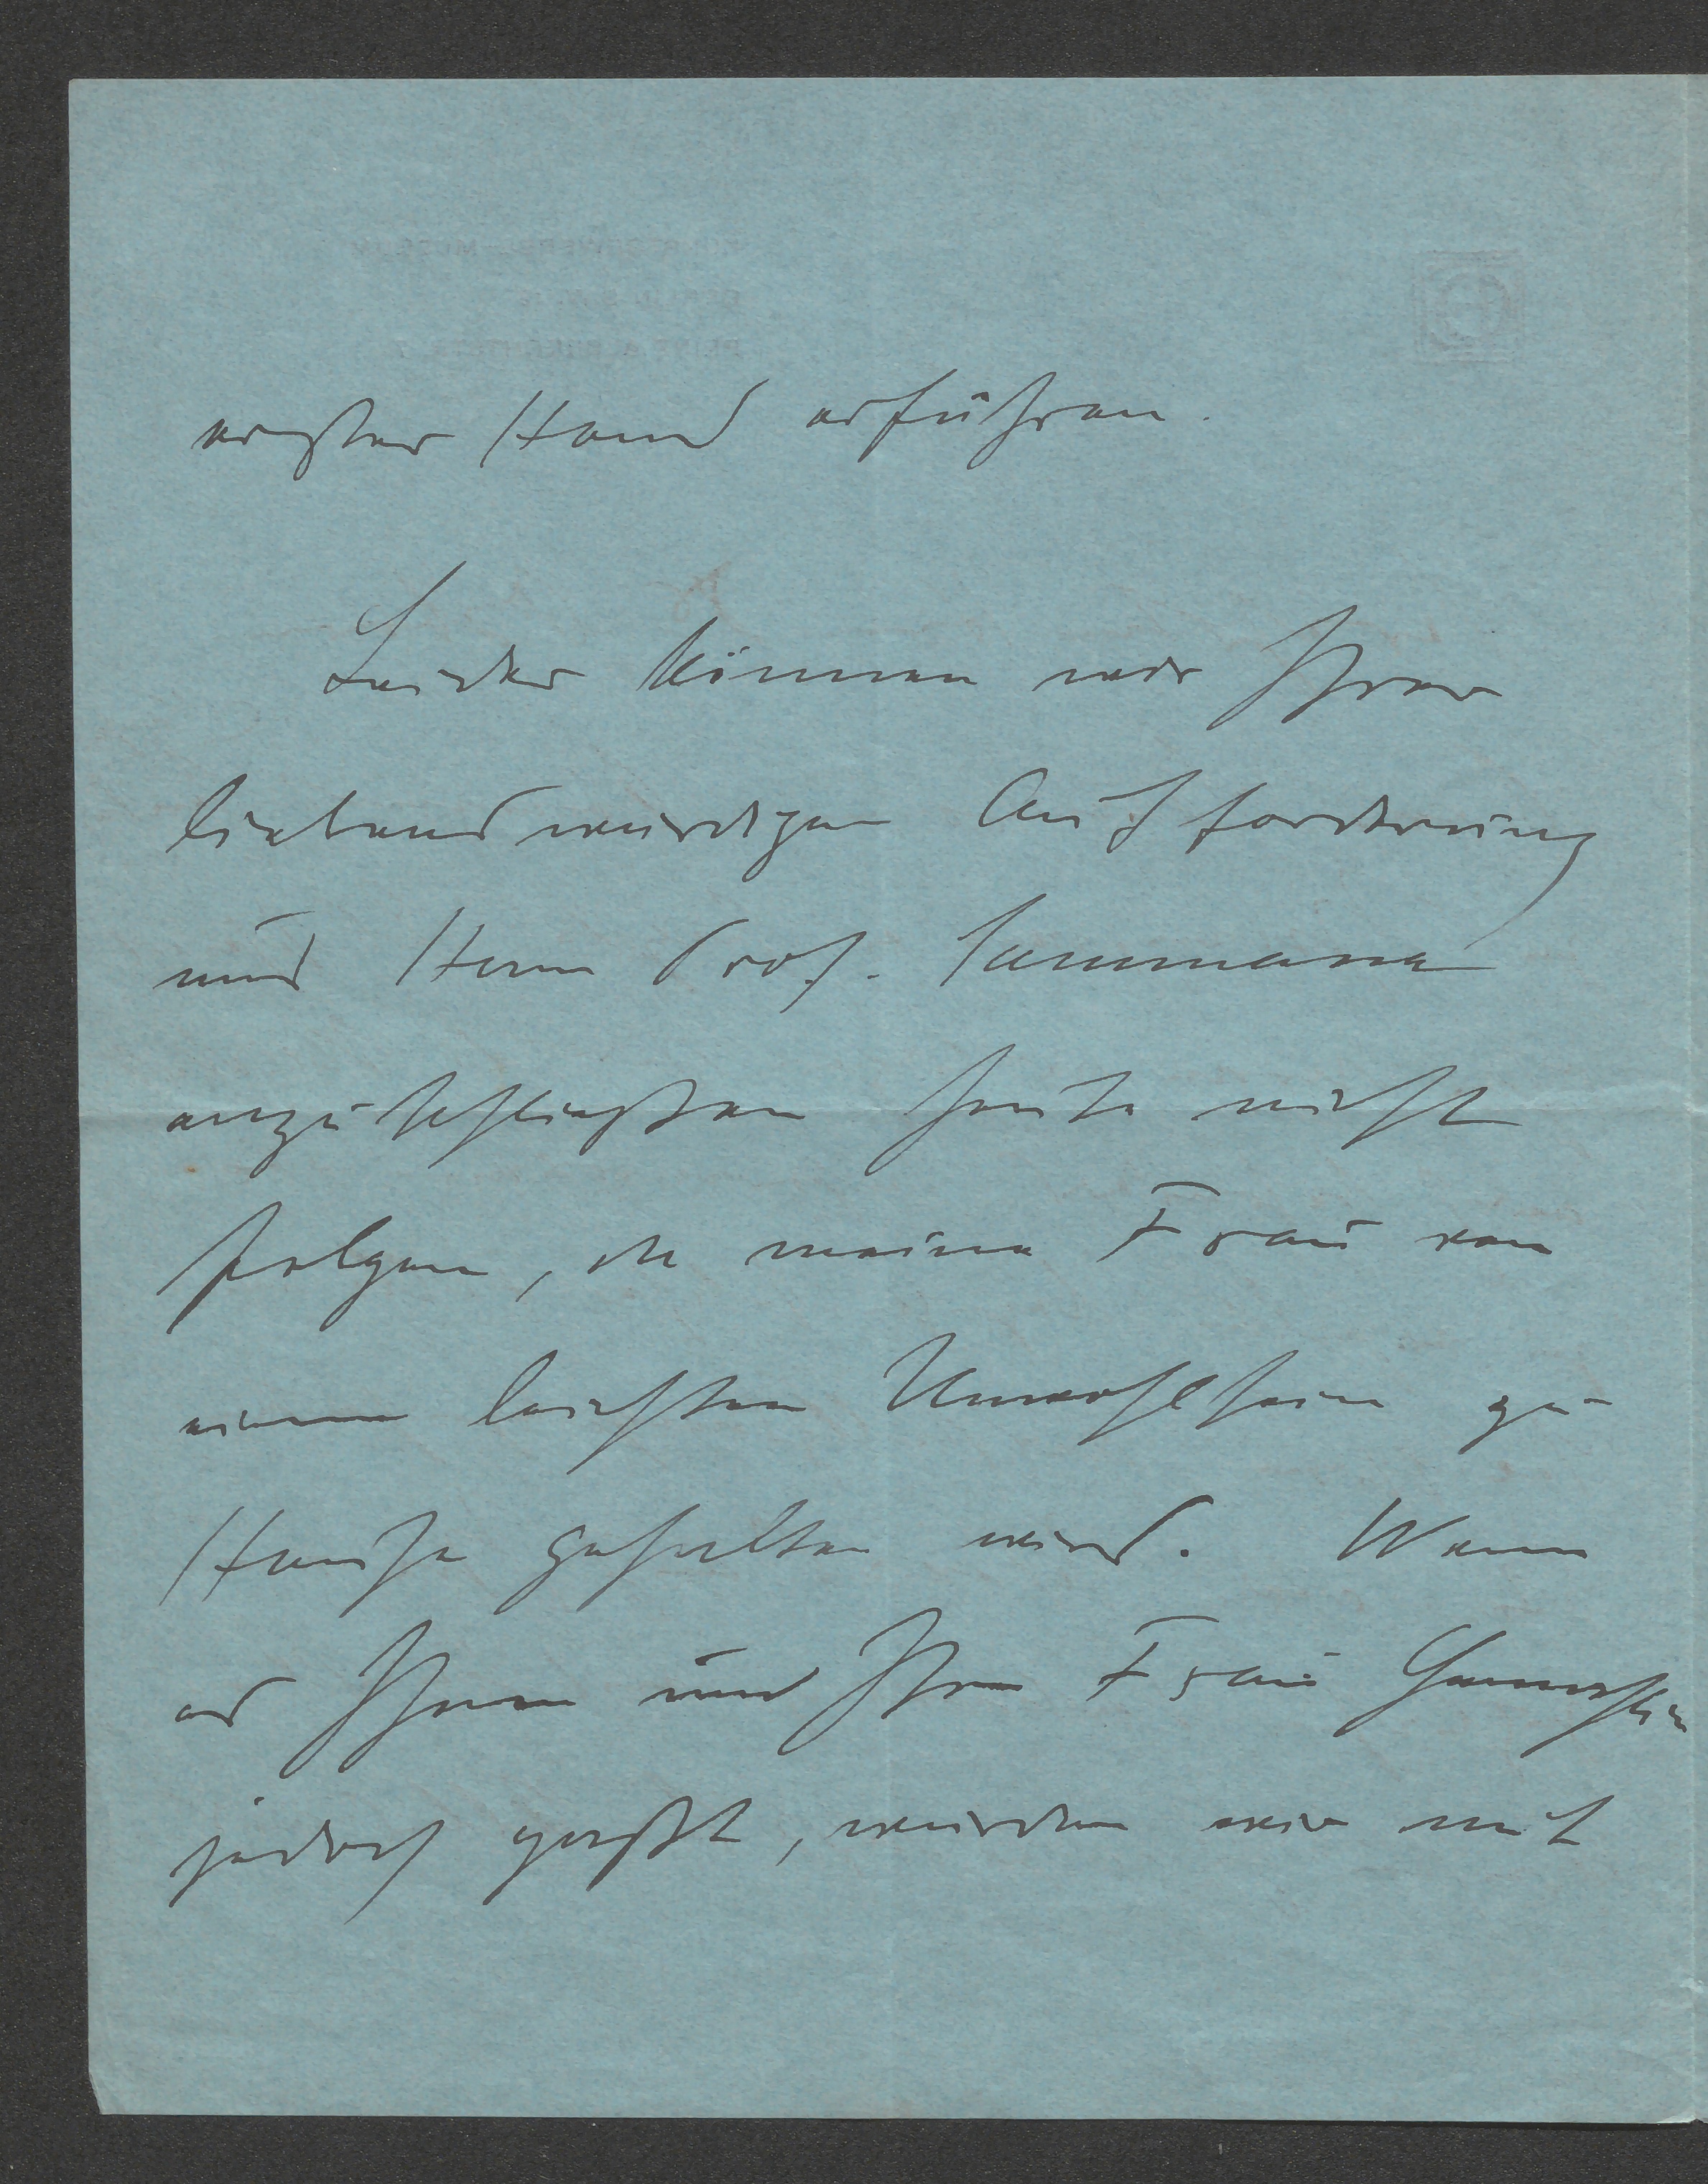 erster Hand erführen.
Leider können wir Ihrer
liebenswürdigen Aufforderung
uns Herrn Prof.
anzuschließen heute nicht
folgen, da meine Frau von
einem leichten Unwohlsein zu
Hause gehalten wird. Wenn
es Ihnen und Ihrer Frau Gemahlin
jedoch passt, würden wir mit